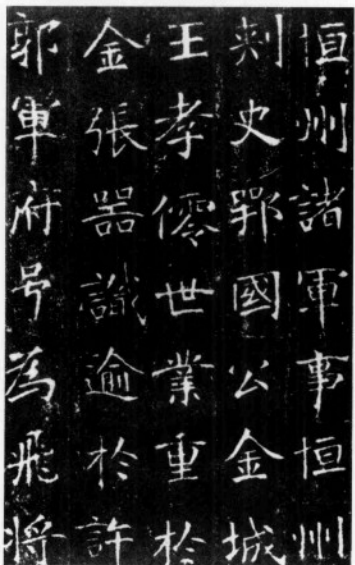 恒州諸軍事恒州
刾史鄂國公金城
王孝僊世業重於
金張器識逾於許
郭軍府号為飛将